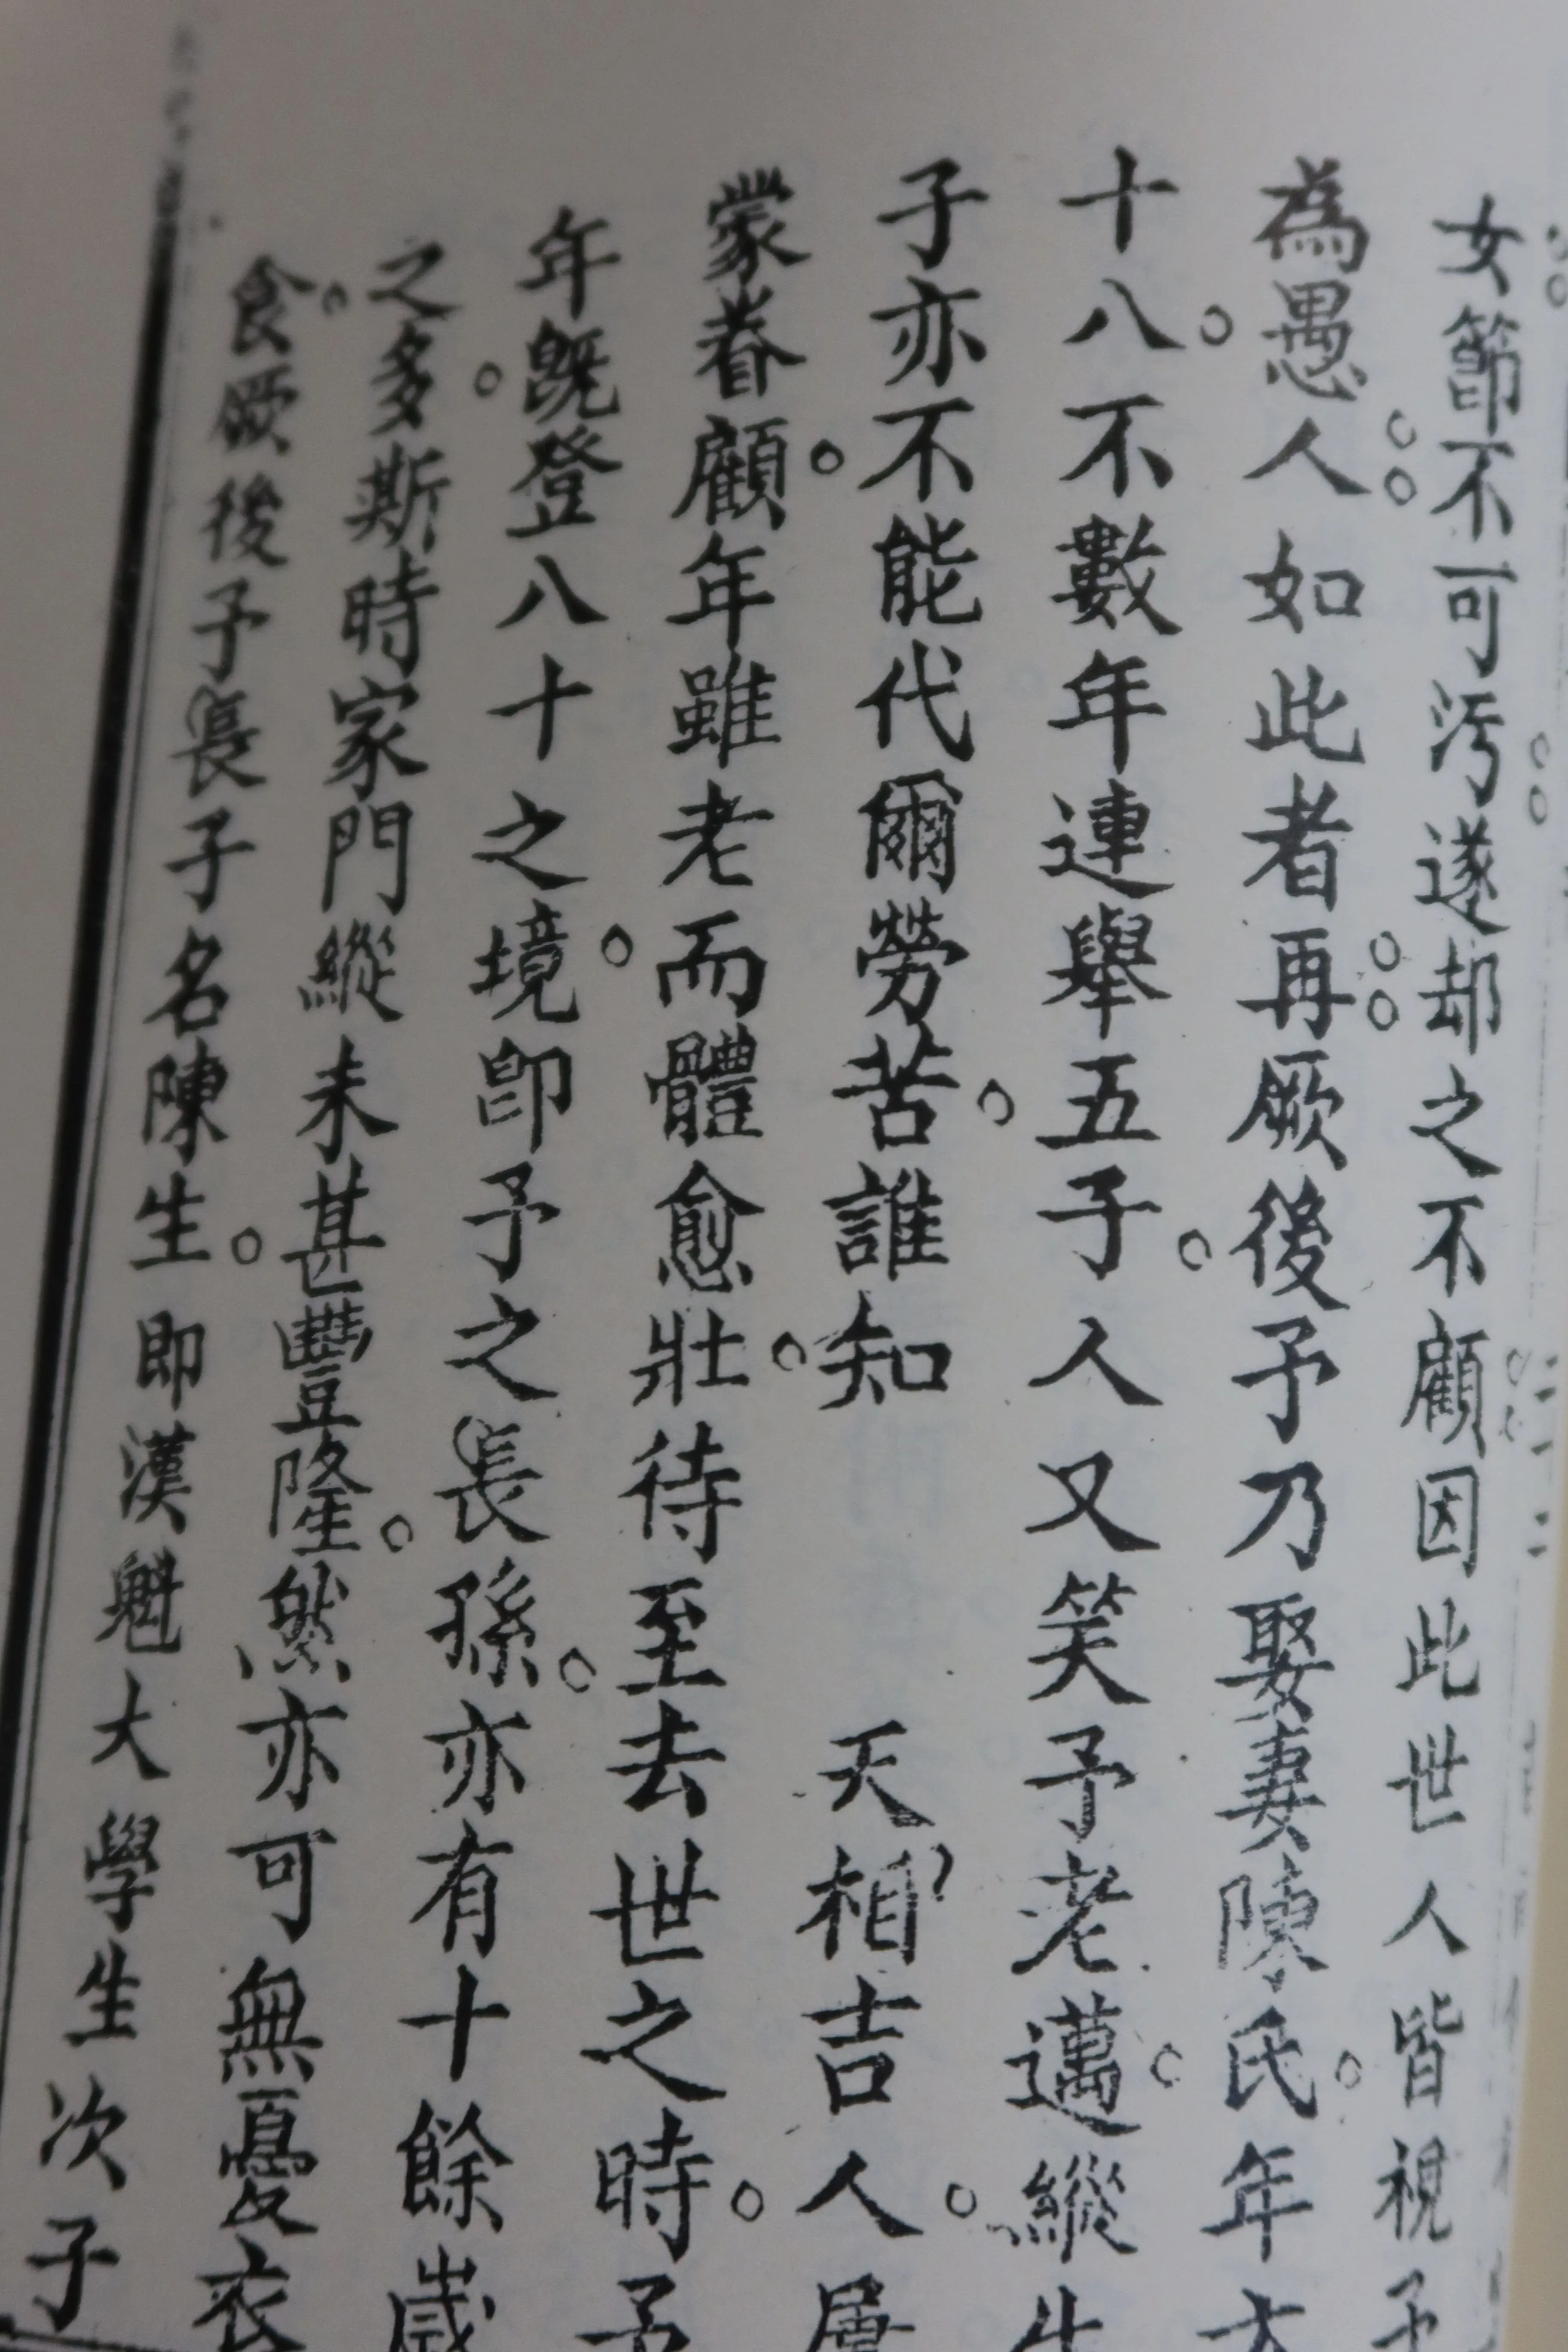 女節不可污遂却之不顧因此世人皆視予
為愚人如此者再厥後予乃娶妻陳氏年
十八不數年連舉五子人又笑予老邁縱生
子亦不能代爾勞苦誰知 天相吉人屢
蒙眷顧年雖老而體愈壯待至去世之時予
年既登八十之境即予之長孫亦有十餘歲
之多斯時家門縱未甚豐隆然亦可無憂衣
食厥後予長子名陳生即漢魁大學生次子